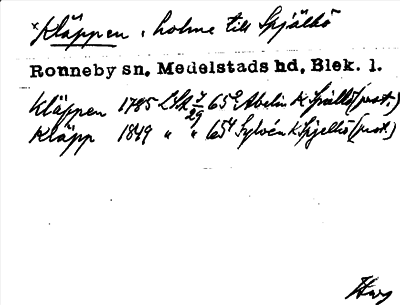 *Kläppen, holme till Spjälkö
Ronneby sn, Medelstads hd, Blek. l.
Kläppen 1785 LSA 7/29 65 K Spjälkö (prot.)
Kläpp 1849 " " 65 Sylvén K Spjelkö (prot.)